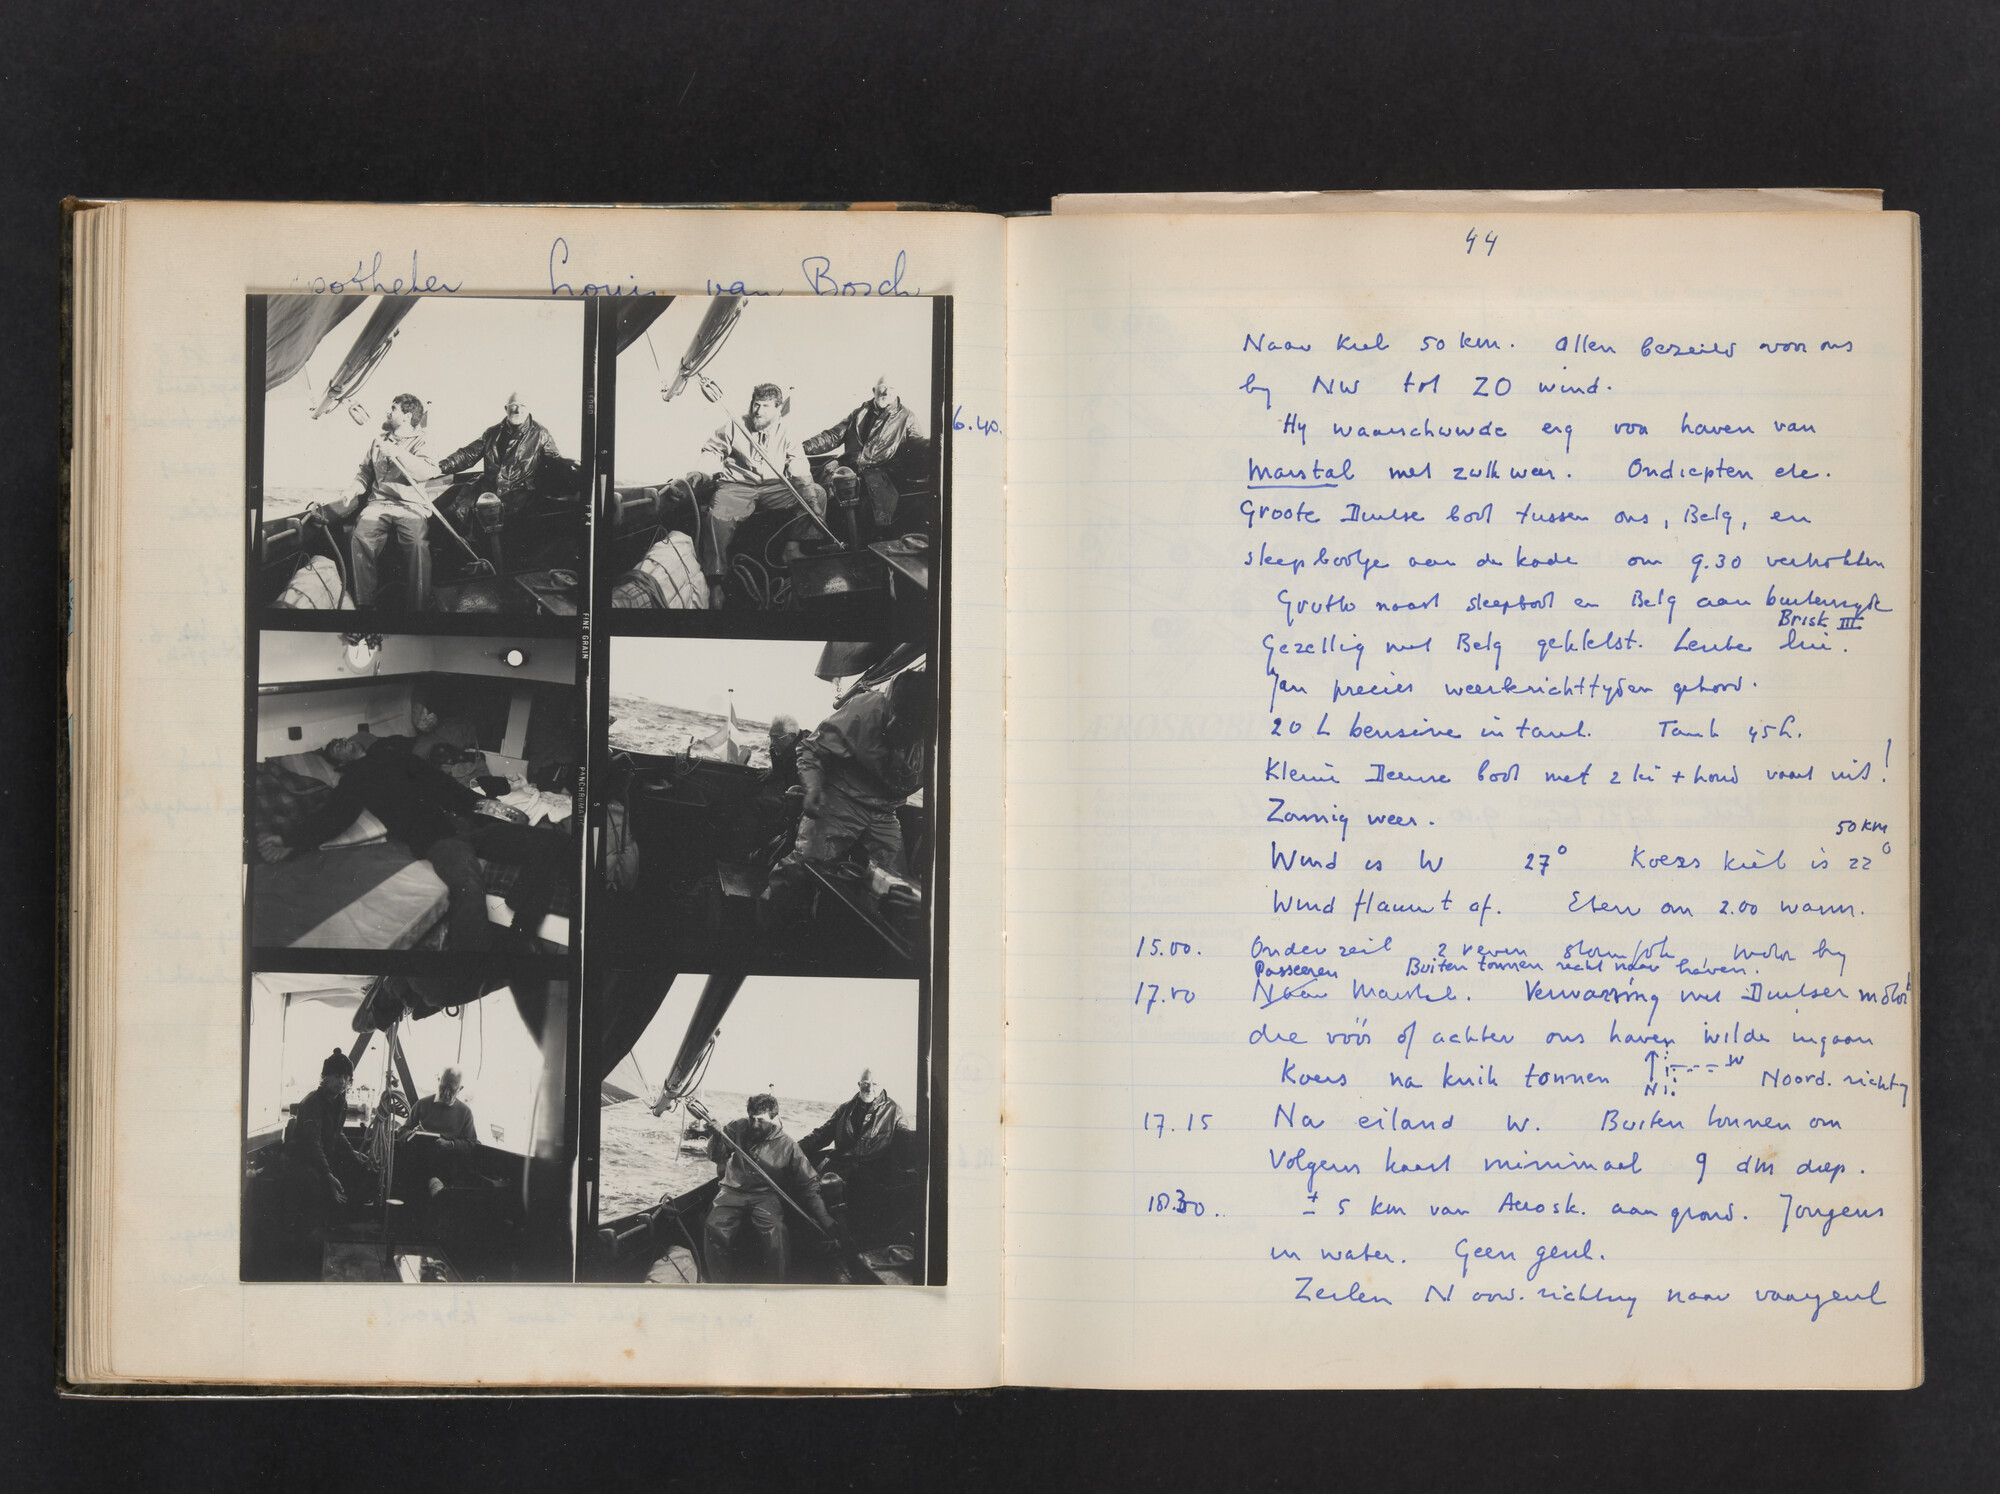 apotheker Louis van Bosch
6.40.
FINE GRAIN
PANCHROMATIC
44
Naar Kiel 50 km. Allen bezeild voor ons
by NW tot ZO wind.
Hy waarschuwde erg voor haven van
Marstal met zulk weer. Ondiepten etc.
Groote Duitse boot tussen ons, Belg, en
sleepbootje aan de kade om 9.30 verhokken
Grutto naast sleepboot en Belg aan buitenzyde
Brisk III
Gezellig met Belg gekletst. Leuke lui.
Jan precies weerberichttyden gehoord.
20 L bensine in tank. Tank 45 L.
Kleine Deense boot met 2 lui + hond vaart uit!
Zonnig weer.
50 km
Wind is W 27° Koers Kiel is 22°
Wind flauwt af. Eten om 2.00 warm.
15.00. Onder zeil 2 reven stormfok motor by
Passeeren Buiten tonnen recht naar haven.
17.00 Naar Marstal. Verwarring met Duitser motor
die vóór of achter ons haven wilde ingaan
Koers na knik tonnen N W Noord. richting
17.15 Na eiland W. Buiten tonnen om
Volgens kaart minimaal 9 dm diep.
18.30. ± 5 km van Aerosk. aan grond. Jongens
in water. Geen geul.
Zeilen Noord. richting naar vaargeul